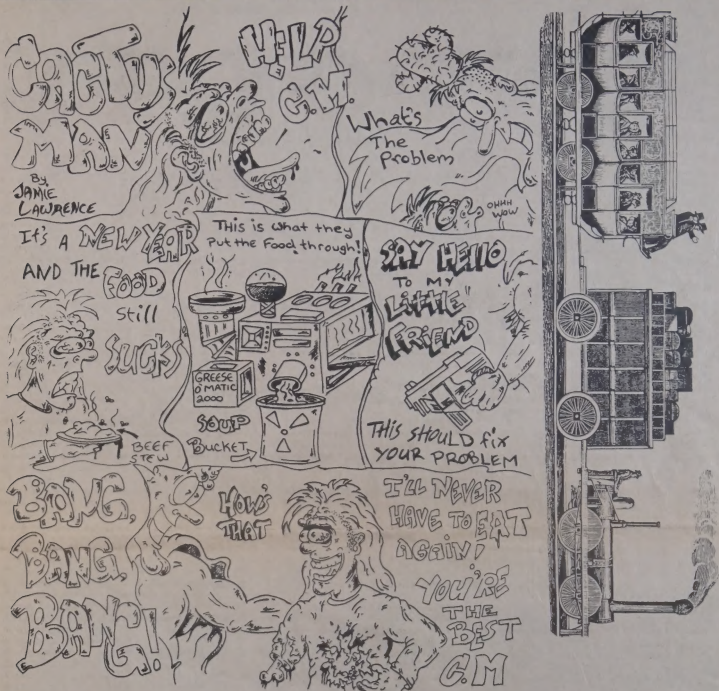 CACTUS
MAN
By
JAMIE
LAWRENCE
HELP
C.M.
What's
The
Problem
OHHH
WOW
It's A NEW YEAR
AND THE FOOD
Still
SUCKS
BEEF
STEW
This is what they
Put the Food through!
GREESE
O'MATIC
2000
SOUP
BUCKET
SAY HELLO
TO MY
LITTLE
FRIEND
THIS SHOULD fix
YOUR PROBLEM
BANG,
BANG,
BANG!
HOW'S
THAT
I'LL NEVER
HAVE TO EAT
AGAIN!
YOU'RE
THE
BEST
C.M